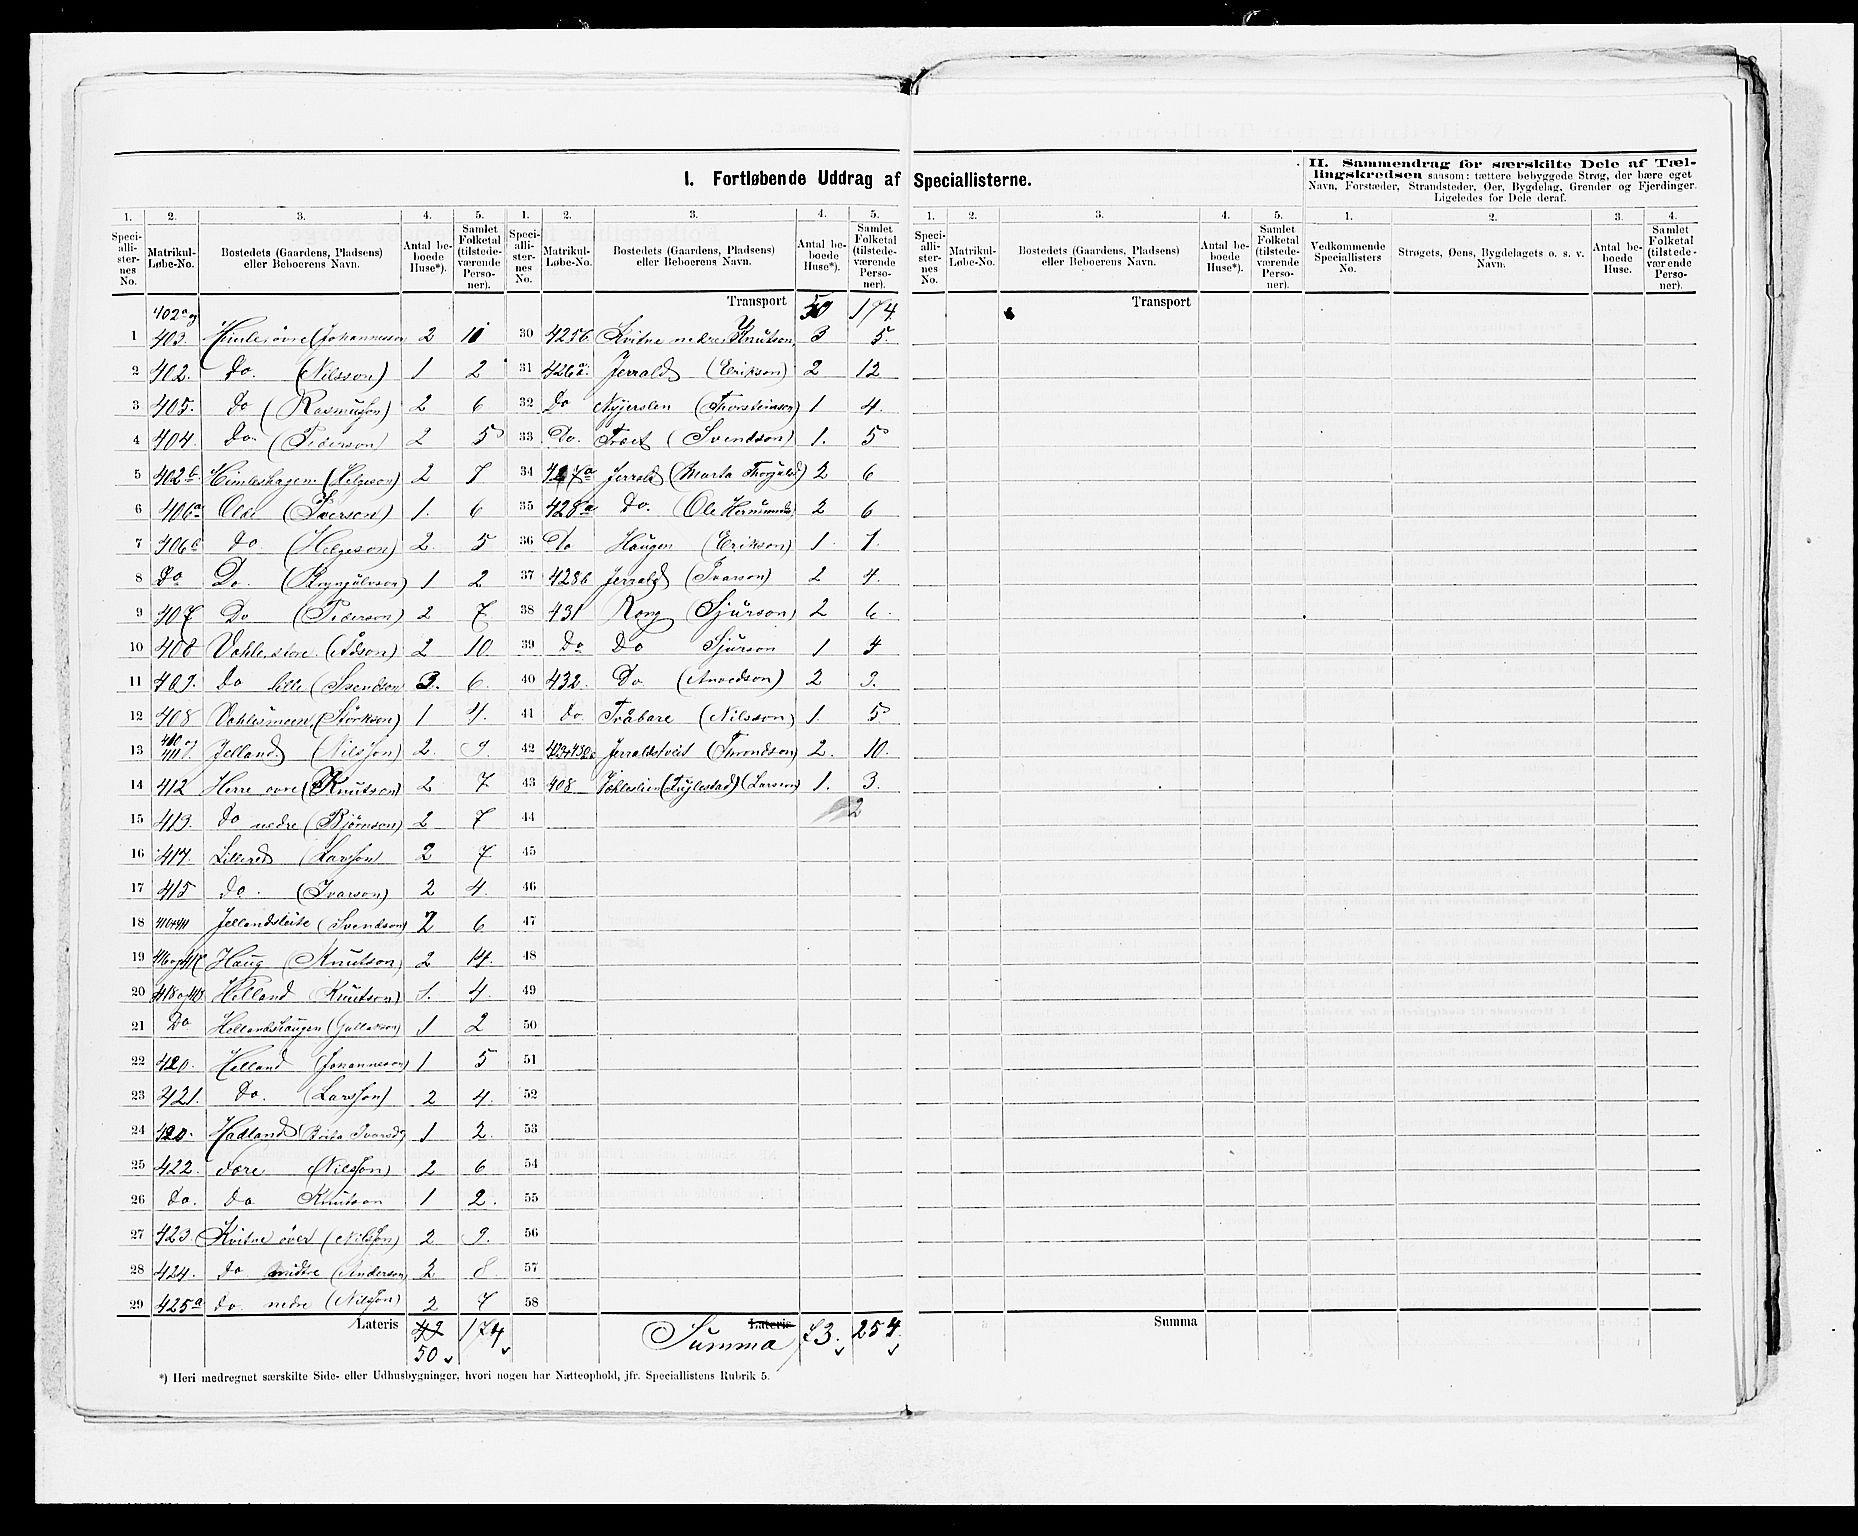 I. Fortløbende Uddrag af Speciallisterne.
II. Sammendrag for særskilte Dele af Tællingskredsen saasom: tættere bebyggede Strøg, der bære eget
Navn, Forstæder, Strandsteder, Øer, Bygdelag, Grender og Fjerdinger.
Ligeledes for Dele deraf.
1. 2. 3. 4. 5. 1. 2. 3. 4. 5. 1. 2. 3. 4. 5. 1. 2. 3. 4.
Speciallisternes No. Matrikul-Løbe-No. Bostedets (Gaardens, Pladsens) eller Beboerens Navn. Antal beboede Huse*). Samlet Folketal (tilstedeværende Personer).
Speciallisternes No. Matrikul-Løbe-No. Bostedets (Gaardens, Pladsens) eller Beboerens Navn. Antal beboede Huse*). Samlet Folketal (tilstedeværende Personer).
Speciallisternes No. Matrikul-Løbe-No. Bostedets (Gaardens, Pladsens) eller Beboerens Navn. Antal beboede Huse*). Samlet Folketal (tilstedeværende Personer).
Vedkommende Speciallisters No. Strøgets, Øens, Bygdelagets o. s. v. Navn. Antal beboede Huse. Samlet Folketal (tilstedeværende Personer).
1 402a og 403. øvre (Johannesson 2
2 402. Do. (Nilsson) 1 2
3 405. Do (Rasmusson) 2 6
4 404. Do. (Pederson) 2 5
5 402b Himleshagem (Helgeson) 2 7
6 406a (Iverson) 1. 6
7 406b Do. (Helgeson) 2. 5
8 Do Do. 1 2
9 407 Do (Pederson) 2 7
10 408 2 10
11 409. Do lille (Svendson 3. 6.
12 408 (Störkson) 1 4.
13 410 og 411 Jelland (Nilsson) 2. 9.
14 412 Herre øvre (Knutson) 2 7
15 413. Do nedre (Björnson) 2 7
16 414. (Larsson 2 7
17 415 Do. (Ivarson) 2 4.
18 410+411 Jellandsleite (Svendson) 2 6
19 Haug (Knutson) 2 14.
20 Helland Knutson) 1. 4.
21 Do Hellandshaugen 1 2
22 420. Helland (Johanneson) 1 5
23 421. Do. (Larsson) 2 4.
24 420. Hadland (Brita Ivarsd) 1 2.
25 422. (Nilsson) 2 6
26 Do. Do Knutson 1 2.
27 423. Kvitne över (Nilsson) 2 9.
28 424. Do midtre (Anderson) 2 8
29 425a Do. nedre (Nilsson) 2 7
Lateris 42 50 174
Transport 50 174.
30 425b. Kvitne nedre Knutson. 3 5.
31 426a. Jerrald (Erikson) 2 12
32 Do (Thorsteinson) 1 4.
33 Do. Træet (Svendson) 1. 5
34 427a Jerrald (Marta 2 6
35 428a Do. (Ole 2 6
36 Do Haugen (Erikson) 1. 1.
37 428b Jerrald (Ivarson) 2 4.
38 431 Rong (Sjurson) 2 6.
39 Do Do Sjurson 1 4
40 432. Do. 2 3.
41 Do. Tråbare (Nilsson) 1. 5
42 Jerraldstveit (Trondson) 2. 10.
43 408 (Larson) 1. 3.
44 2
45
46
47
48
49
50
51
52
53
54
55
56
57
58
Lateris
Summa 73. 254.
Transport
Summa
*) Heri medregnet særskilte Side- eller Udhusbygninger, hvori nogen har Natteophold, jfr. Speciallistens Rubrik 5.